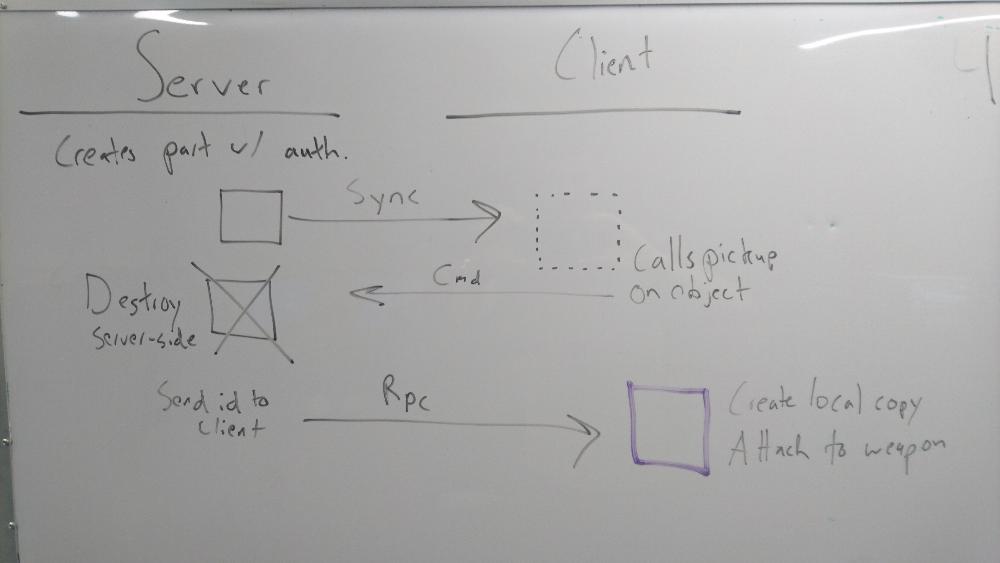 Server
Client
Creates part w/ auth.
Sync
Calls pickup
on object
Cmd
Destroy
Server-side
Send id to
client
Rpc
Create local copy
Attach to weapon